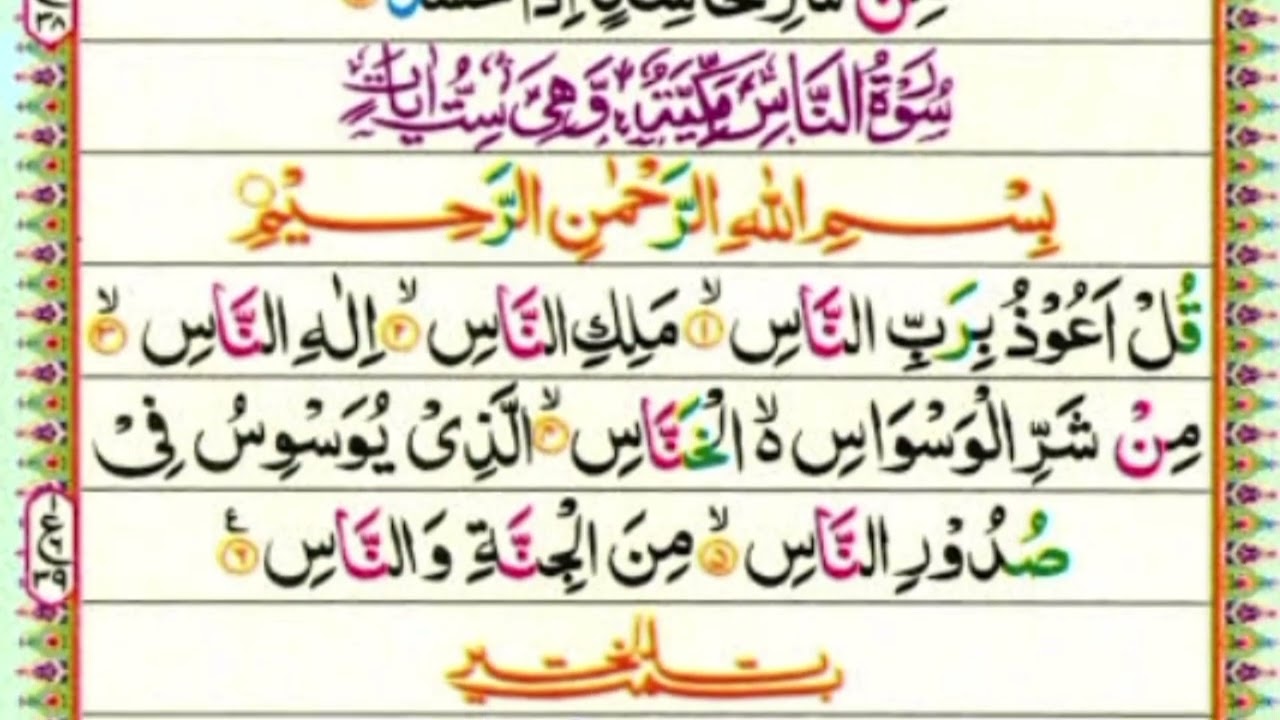 مِنْ شَرِّ حَاسِدٍ اِذَا حَسَدَ
سُوْرَةُ النَّاسِ مَكِّيَّةٌ وَّهِىَ سِتُّ اٰيَاتٍ
بِسْمِ اللّٰهِ الرَّحْمٰنِ الرَّحِيْمِ
قُلْ اَعُوْذُ بِرَبِّ النَّاسِ ۙ‏﴿۱﴾ مَلِكِ النَّاسِ ۙ‏﴿۲﴾ اِلٰهِ النَّاسِ ۙ‏﴿۳﴾
مِنْ شَرِّ الْوَسْوَاسِ ۙ۬ الْخَنَّاسِ ۙ‏﴿۴﴾ الَّذِىْ يُوَسْوِسُ فِىْ
صُدُوْرِ النَّاسِ ۙ‏﴿۵﴾ مِنَ الْجِنَّةِ وَ النَّاسِ ‏﴿۶﴾ ع